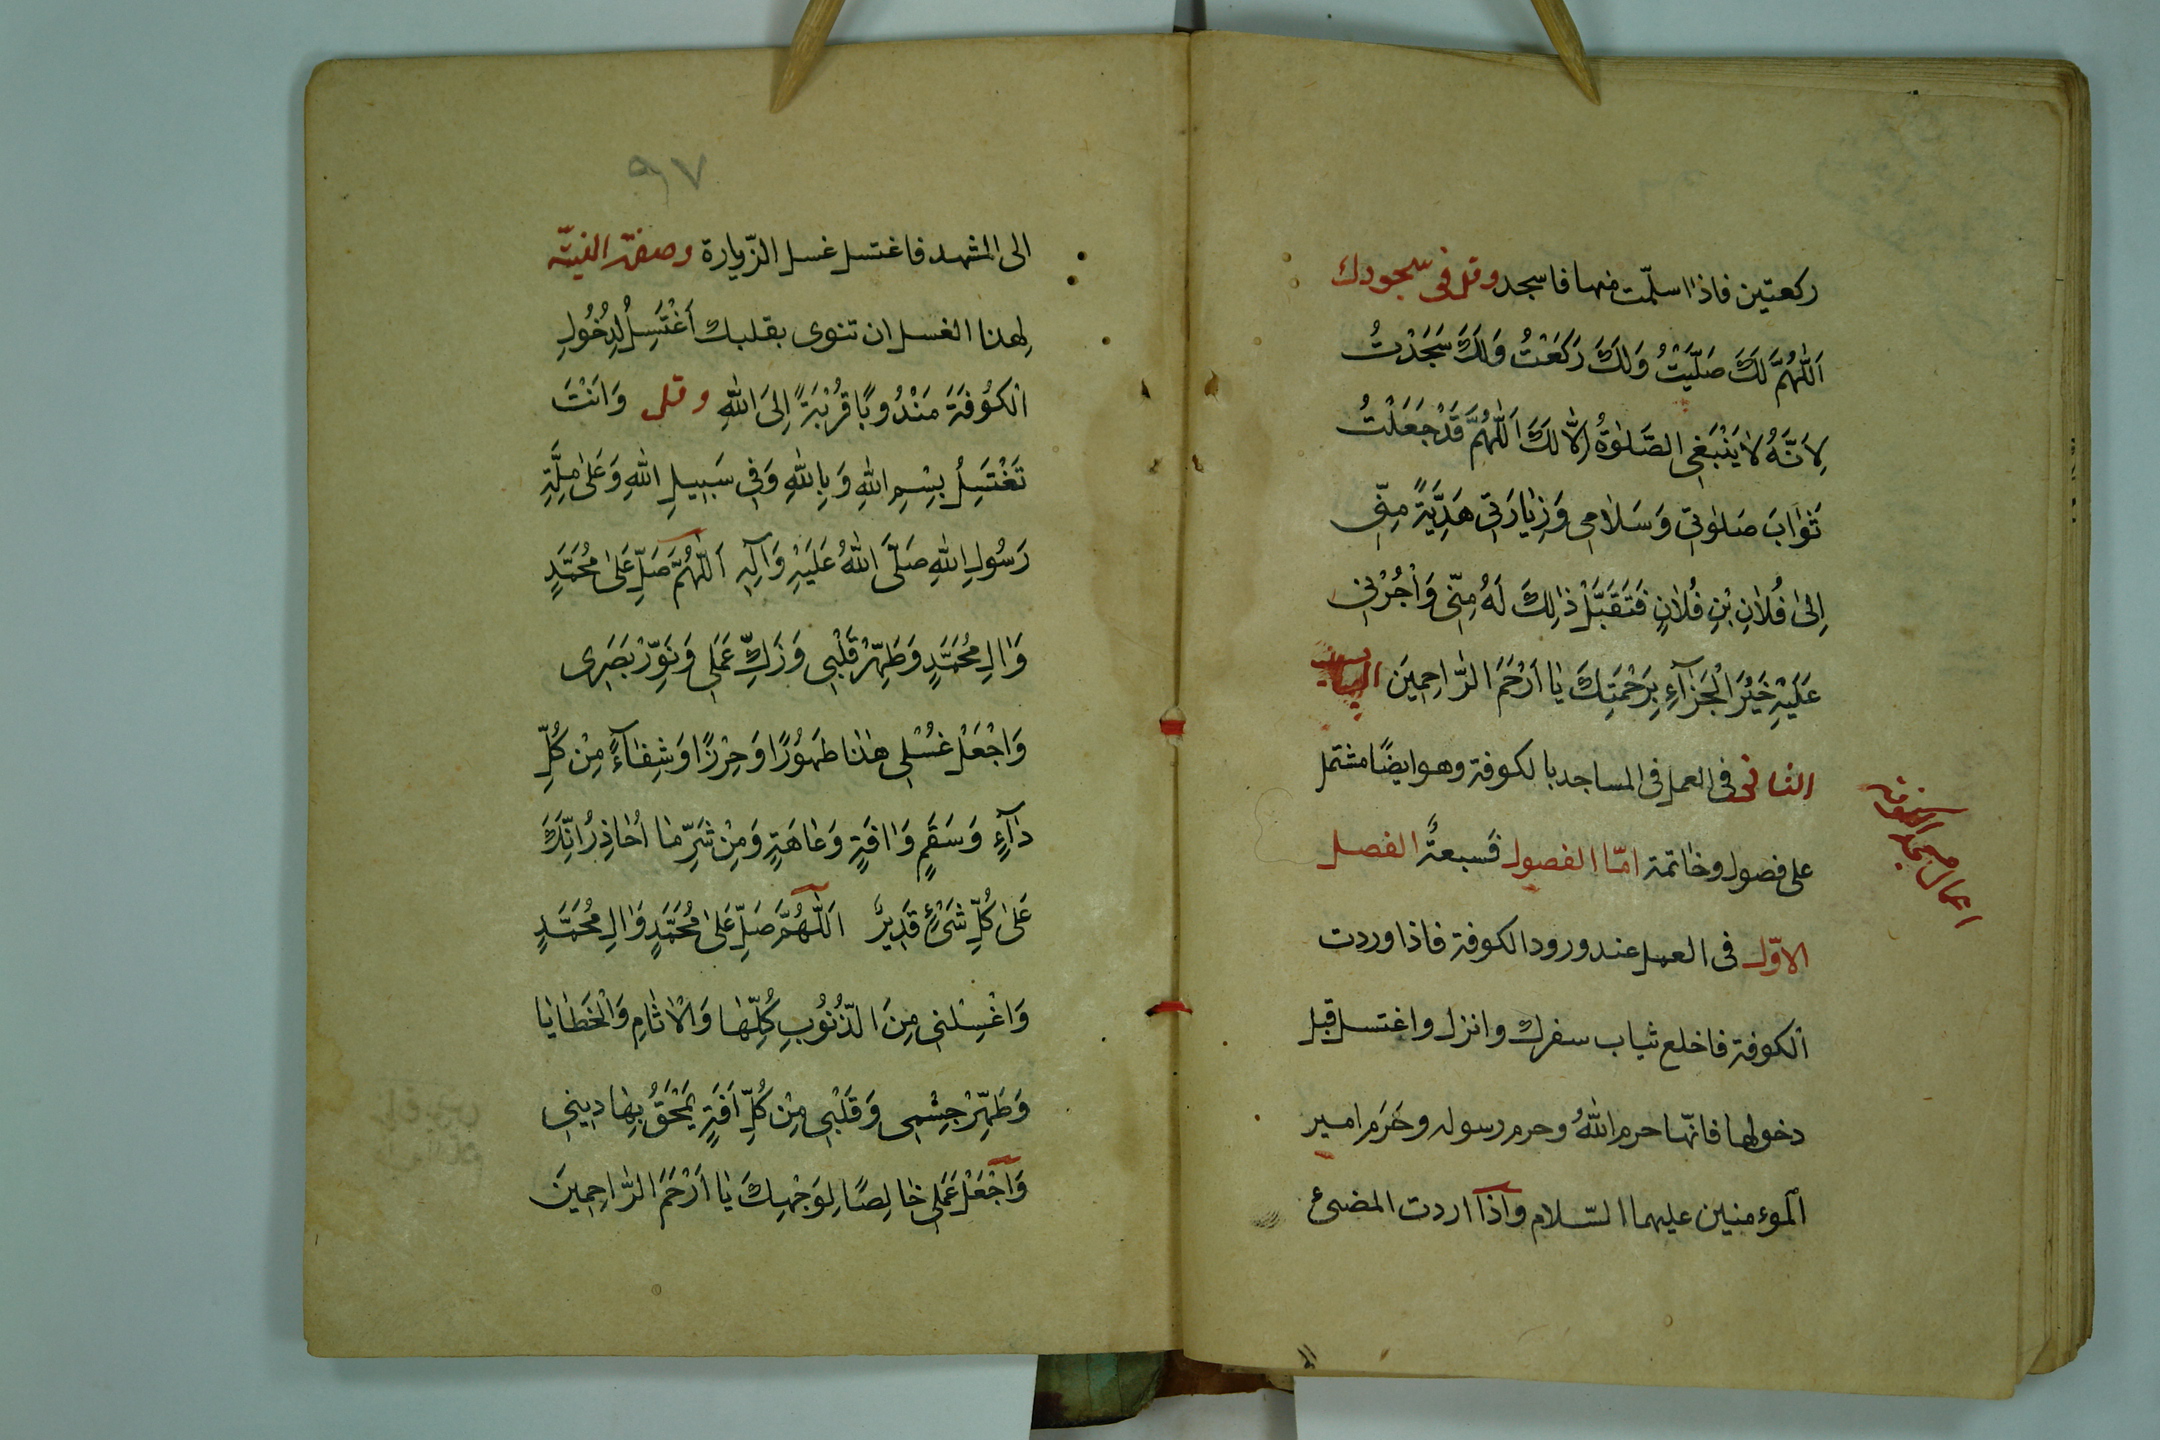 ركعتين فاذا سلّمت منها فاسجد وقل فى سجودك
اَللّٰهُمَّ لَكَ صَلَّيْتُ وَلَكَ رَكَعْتُ وَلَكَ سَجَدْتُ
لِاَنَّهُ لاٰ يَنْبَغِى الصَّلوٰةُ اِلّاٰ لَكَ اَللّٰهُمَّ قَدْ جَعَلْتُ
ثَوٰابَ صَلوٰتِى وَسَلاٰمِى وَزِيٰارَتِى هَدِيَّةً مِنِّى
اِلىٰ فُلاٰنِ بْنِ فُلاٰنٍ فَتَقَبَّلْ ذٰلِكَ لَهُ مِنِّى وَاْجُرْنِى
عَلَيْهِ خَيْرَ الْجَزٰآءِ بِرَحْمَتِكَ يٰا اَرْحَمَ الرّٰاحِمِينَ الباب
الثانى فى العمل فى المساجد بالكوفة وهو ايضًا مشتمل
على فصول وخاتمة امّا الفصول فسبعةٌ الفصل
الاوّل فى العمل عند ورود الكوفة فاذا وردت
الكوفة فاخلع ثياب سفرك وانزل واغتسل قبل
دخولها فانّها حرم اللّٰهُ وحرم رسوله وحَرَم امير
الموءمنين عليهما السّلام واذا اردت المضىء
اعمال مسجد الكوفه
الى
٩٧
الى المشهد فاغتسل غسل الزّيارة وصفة النيّة
لهذا الغسل ان تنوى بقلبك اَغْتَسِلُ لِدُخُولِ
الْكُوفَةَ مَنْدُوبًا قُرْبَةً اِلَى اللّٰهِ وقل وَاَنْتَ
تَغْتَسِلُ بِسْمِ اللّٰهِ وَبِاللّٰهِ وَفِى سَبِيلِ اللّٰهِ وَعَلىٰ مِلَّةِ
رَسُولِ اللّٰهِ صَلَّى اللّٰهُ عَلَيْهِ وَآلِهِ اَللّٰهُمَّ صَلِّ عَلىٰ مُحَمَّدٍ
وَاٰلِ مُحَمَّدٍ وَطَهِّرْ قَلْبِى وَزَكِّ عَمَلِى وَنَوِّرْ بَصَرِى
وَاجْعَلْ غُسْلِى هٰذٰا طَهُورًا وَحِرْزًا وَشِفٰآءً مِنْ كُلِّ
دٰآءٍ وَسَقَمٍ وَاٰفَةٍ وَعٰاهَةٍ وَمِنْ شَرِّ مٰا اُحٰاذِرُ اِنَّكَ
عَلىٰ كُلِّ شَىْءٍ قَدِيرٌ اَللّٰهُمَّ صَلِّ عَلىٰ مُحَمَّدٍ وَاٰلِ مُحَمَّدٍ
وَاغْسِلْنِى مِنَ الذُّنُوبِ كُلِّهٰا وَالْاٰثٰامِ وَالْخَطٰايٰا
وَطَهِّرْ جِسْمِى وَقَلْبِى مِنْ كُلِّ اٰفَةٍ يَمْحَقُ بِهٰا دِينِى
وَاجْعَلْ عَمَلِى خٰالِصًا لِوَجْهِكَ يٰا اَرْحَمَ الرّٰاحِمِينَ